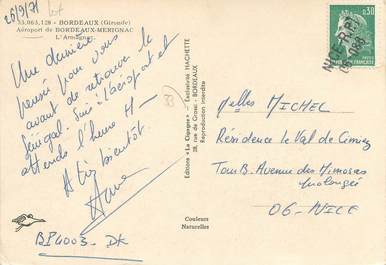 26/9/71
33.063.128 - BORDEAUX (Gironde)
Aéroport de BORDEAUX-MERIGNAC
L'Armagnac
Une dernière
pensée pour vous
avant de retrouver le
Sénégal. Suis à l'aéroport et
attends l'heure H -
A bientôt.
BP 4003 - DK
33
Editions "La Cigogne" - Exclusivité HACHETTE
28, rue de Grassi - BORDEAUX
Reproduction interdite
Couleurs
Naturelles
0,30
NICE R.P.
Melles MICHEL
Résidence le Val de Cimiez
Tour B. Avenue des Mimosas
prolongée
06 - NICE